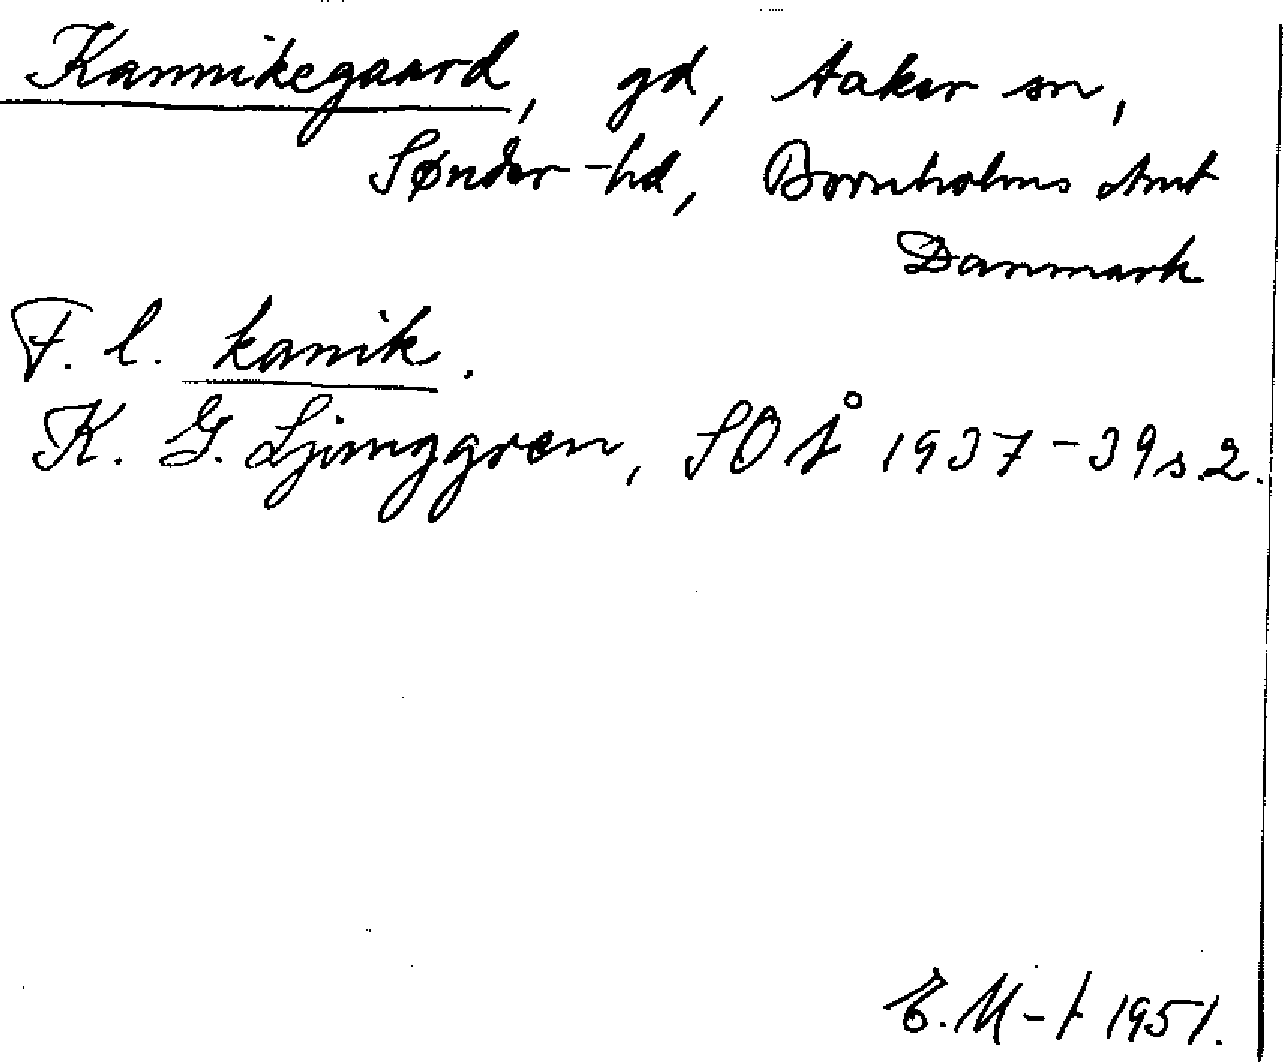 Kannikegaard, gd, Aaker sn,
Sønder-hd, Bornholms Amt
Danmark
F. l. kanik.
K. G. Ljunggren, SOÅ 1937-39 s. 2.
E. M-t 1951.